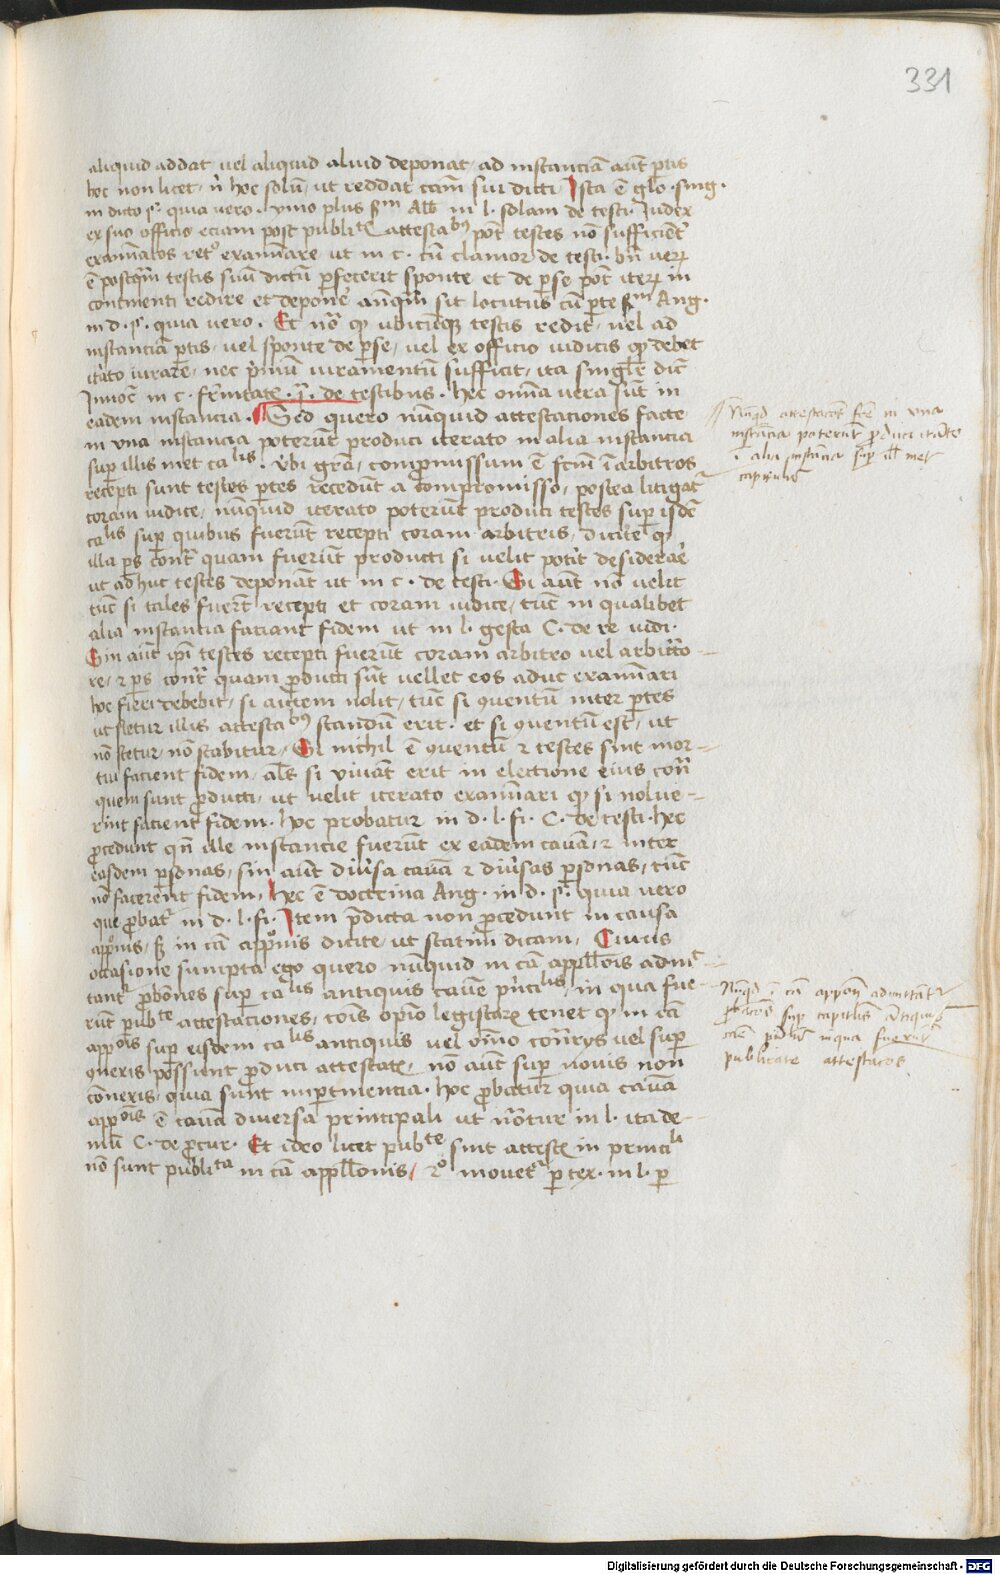 331
aliquid addat uel aliquid aliud deponat, ad instanciā aūt ptis
hoc non licet, n̄ hoc solū, ut reddat cām sui dicti, Ista ē glo. sing.
in dicto §. quia vero. ymo plus sm Alb in l. solam de testi. Iudex
ex suo officio eciam post publite attestabꝰ pōt testes nō sufficient̄
examīatos reto examīare ut in c. cū clamor de testi. bn̄ uerū
ē postqm̄ testis suū dictū pfecerit sponte et de pse pōt iterū in
continenti redire et depone' anqm̄ sit locutus cū pte sm Ang.
in d. §. quia uero. Et nōt qp ubicūqz testis redit, uel ad
instanciā ptis, uel sponte de pse, uel ex officio iudicis qp debet
itāto iurare, nec p̄imū iuramentū sufficit, ita singlr̄ dic̄
Innoc̄ in c. fr̄nitatē. §. de testibus. hec omīa vera sūt in
eadem instancia. Sed quero nūnquid attestaciones facte
in una instancia poterūt produci iterato in alia instancia
sup illis met calis. vbi grā, compmissum ē fcm̄ ī arbitros
recepti sunt testes ptes recedūt a compromisso, postea litigat
coram iudice, nūnquid iterato poterūt produci testes sup isdē
calis sup quibus fuerūt recepti coram arbitris, dicite qp
illa ps cont̄ quam fuerūt producti si velit potīt desiderae
ut adhuc testes deponāt ut in c. de testi. Si aūt nō velit
tūc si tales fuerūt recepti et coram iudice, tūc in qualibet
alia instancia faciant fidem ut in l. gesta C. de re iudi.
Sin aūt ip̄i testes recepti fuerūt coram arbitro vel arbitrō
re, ⁊ ps cont̄ quam pducti sūt vellet eos aduc examīari
hoc fieri debebit, si autem nolit, tūc si quentū inter ptes
ut stetur illis attestabꝰ standū erit. et si quentū est, ut
nō stetur, nō stabitur, Si nichil ē quentū ⁊ testes sint mor-
tui facient fidem, als̄ si viuāt erit in electione eius cōn̄
quem sunt pducti, ut uelit iterato examīari qp si nolue-
rint facient fidem. hoc probatur in d. l. fi. C. de testi. hec
procedunt qn̄ ille instancie fuerūt ex eadem causa, ⁊ inter
easdem psonas, sin aūt diu'sa causā ⁊ diu'sas psonas, tūc
nō facerent fidem, hec ē doctrina Ang. in d. §. quia vero
que pbat in d. l. fi. Item p̄dicta non pcedunt in causa
appōnis, sz in cā appōnis dicite, ut statim dicam, Cuius
occasione sumpta ego quero nūnquid in cā appllōis admit-
tant pbōnes sup calis antiquis cause p̄ncilis, in qua fue-
rūt pubte attestaciones, cōis opīo legistarū tenet qp in cā
appōis sup eisdem calis antiquis vel ymo cōtr̄ys vel sup
quexis possunt pduci attestate, nō aūt sup nouis non
cōnexis, quia sunt inptinencia. hoc pbatur quia causa
appōis ē causa diuersa principali ut nōtur in l. ita de-
mū C. de pcur. Et ideo licet pubte sint attestes in princili
nō sunt publita in cā appllōnis, 2o mouet p tex. in l. p
Nūqd attestacōes fcē in una
instancia poterūt pduci itāto
ī alia instācia sup ill' met
capitulis
Nūqd ī cā appōnis admittāt
pbacōes sup capitlis ātiquis
cāe p̄ncilis in qua fuerūt
publicate attestacōes
Digitalisierung gefördert durch die Deutsche Forschungsgemeinschaft - DFG